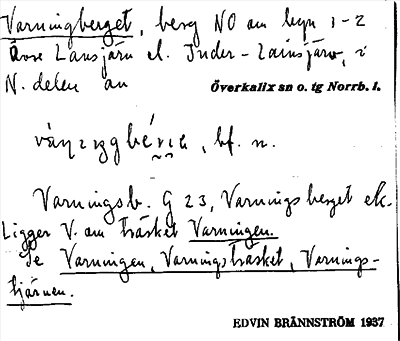 Varningberget, berg NO om byn 1-2
Övre Lansjärv el. Inder-Lainsjärv, i
N. delen av Överkalix sn o. tg Norrb. l.
bf. n.
Varningsb. G 23, Varningsberget ek.
Ligger V. om träsket Varningen.
Se Varningen, Varningsträsket, Varnings-
tjärnen.
EDVIN BRÄNNSTRÖM 1937